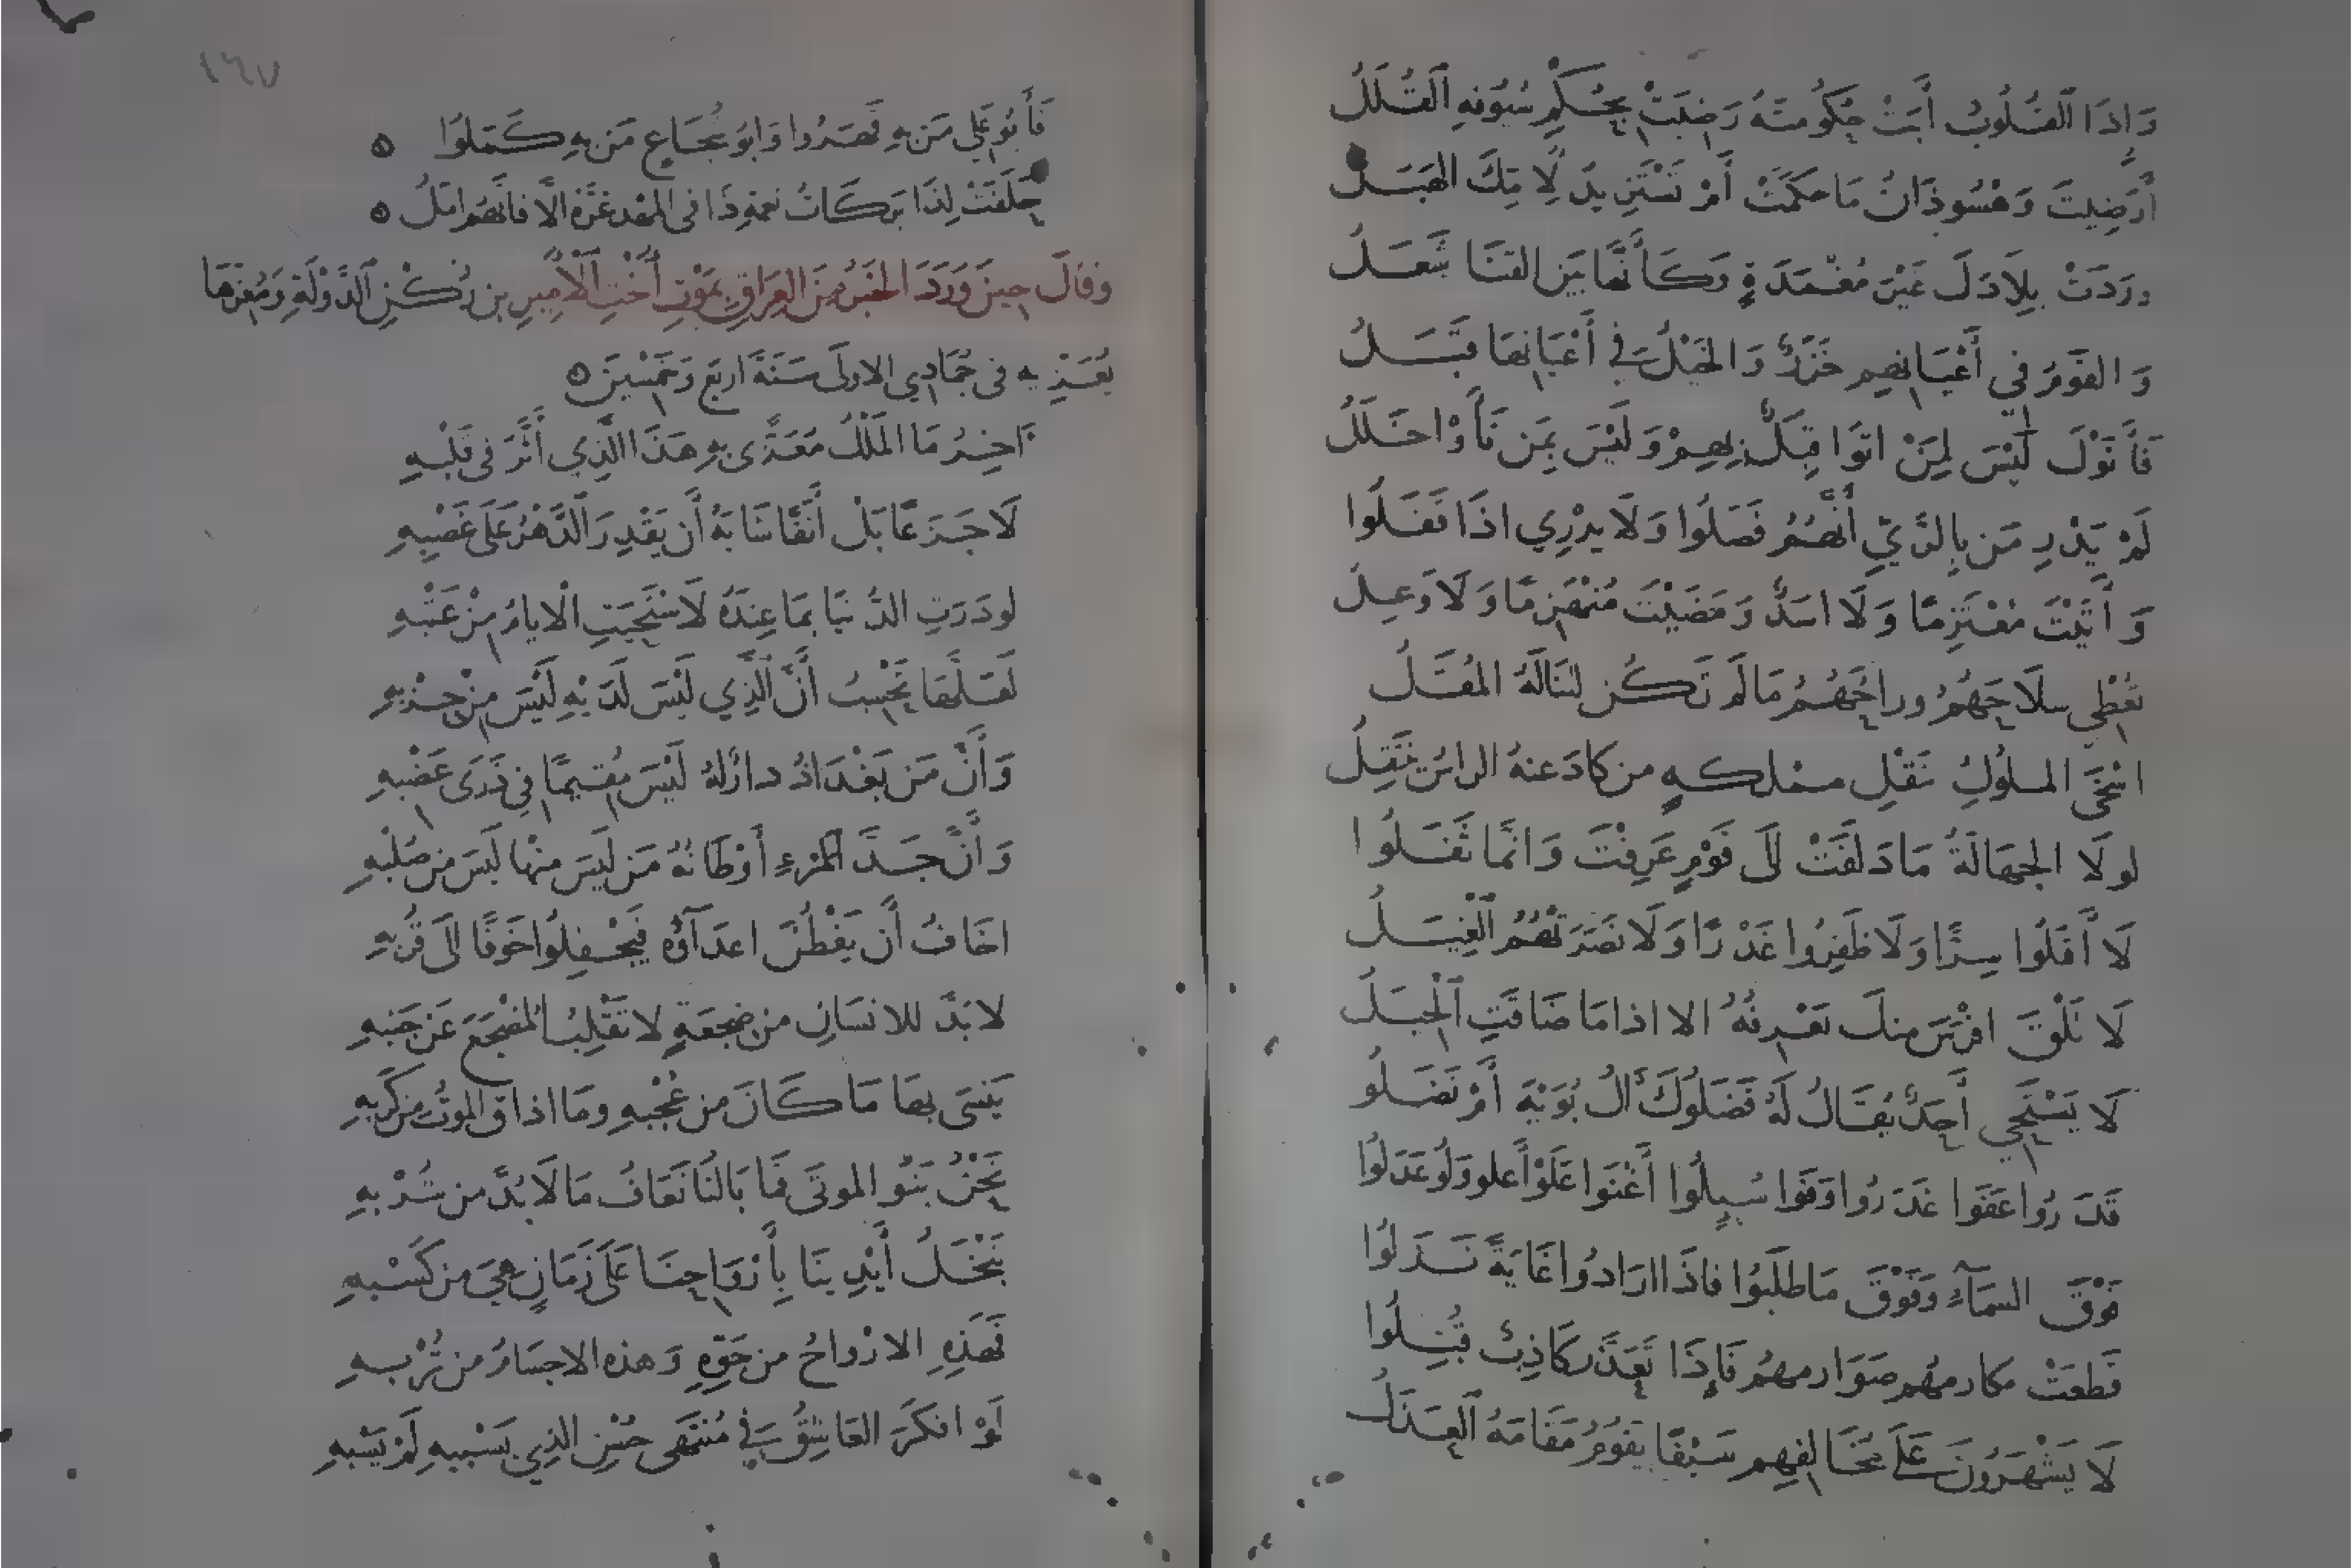 وَاِذَا القُلُوبُ أَبَتْ حُكُومَتَهُ رَضِيَتْ بِحُكْمِ سُيُوفِهِ القُلَلُ
أَرَضِيتَ وَهْسُوذَانُ مَا حَكَمَتْ أَمْ تَسْتَزِيدُ لِأُمِّكَ الهَبَلُ
وَرَدَتْ بِلَادَكَ غَيْرَ مُغْمَدَةٍ وَكَأَنَّهَا بَيْنَ القَنَا شُعَلُ
وَالقَوْمُ فِي أَعْيَانِهِم خَزَرٌ وَالخَيْلُ فِي أَعْيَانِهَا قَبَلُ
فَأَتَوْكَ لَيْسَ لِمَنْ اتَوْا قِبَلٌ بِهِمْ وَلَيْسَ بِمَن نَأَوْا خَلَلُ
لَمْ يَدْرِ مَن بِالرَّيِّ أَنَّهُمُ فَصَلُوا وَلَا يَدْرِي اذَا قَفَلُوا
وَأَتَيْتَ مُعْتَزِمًا وَلَا اسَدٌ وَمَضَيْتَ مُنْهَزِمًا وَلَا وَعِلُ
تُعْطِي سِلَاحَهُمُ وراحَهُمُ مَا لَم تَكُن لِتَنَالَهُ المُقَلُ
اسْخَى الملُوكِ بنَقْلِ مملكهٍ من كادَ عنهُ الراسُ يَنْتَقِلُ
لولَا الجهَالَةُ مَا دَلَفْتَ إلَى قَوْمٍ غَرِقْتَ وَانَّمَا تَفَلُوا
لَا أَقْبَلُوا سِرًّا وَلَا ظَفِرُوا غَدْرًا وَلَا نَصَرَتْهُمُ الغِيَلُ
لَا تَلْقَ افْرَسَ منكَ تَعْرِفُهُ الا اذا مَا ضَاقَتِ الْحِيَلُ
لَا يَسْتَحِي أَحَدٌ يُقَالُ لَهُ فَضَلُوكَ ألُ بُوَيْهِ أَوْ نَضَلُو
قَدَرُوا عَفَوْا غَدَرُوا وَفَوْا سُيِلُوا أَغْنَوا عَلَوْا أَعلو وَلُوْ عَدَلُوْا
فَوْقَ السمَآءِ وَفَوْقَ مَا طلَبُوا فاذَا ارَادُوا غَايَةً نَزَلُوْا
قَطعَتْ مكارمهُم صَوَارمهمُ فَإِذَا تَعَذَّرَ كَاذِبٌ قُبِلُوْا
لَا يَشْهَرُونَ عَلَى مُخَالفِهِم سَيْفًا يقُومُ مَقَامَهُ العَذَلُ
٤٦٧
فَأَبُو عَلِي مَن بِهِ قَهَرُوا وَابُو شُجَاعٍ مَن بِهِ كَمَلُوا
حَلَفَتْ لِذَا بَرَكَاتُ نعمه ذَا فى المَهْدِ غُرَّة الَّا فَاتَهُم امَلُ
وقالَ حِينَ وَرَدَ الخَبَرُ مِنَ العِرَاقِ بِمَوْتِ أُخْتِ الْأَمِيرِ بن رُكْنِ الدَّوْلَةِ وَمُعِزِّهَا
يُعَزِّيهِ فى جُمَادي الاولَى سَنَة اربَع وَخَمْسِينَ
آخِرُ مَا المَلْكُ مُعَزًّى بِهِ هَذَا الَّذِي أَثَّرَ فى قَلْبِهِ
لَا جَزَعًا بَلْ أَنَفًا شَابَهُ أَن يَقْدِرَ الدَّهْرُ عَلَى غَصْبِهِ
لو دَرَتِ الدُّنيَا بِمَا عِنْدَهُ لَاسْتَحْيَتِ الايامُ مِنْ عَتْبِهِ
لَعَلَّهَا تَحْسِبُ أَنَّ الَّذِي لَيْسَ لَدَيْهِ لَيْسَ مِنْ حِزْبِهِ
وَأَنَّ مَن بَغْدَاذُ دارٌ لهُ لَيْسَ مُقِيمًا فِي ذَرَى عَضْبِهِ
وَأَنَّ جَدَّ المَرْءِ أَوْطَانُهُ مَن لَيسَ منْهَا لَيسَ من صُلْبِهِ
اخَافُ أَن يَفْطُنَ اعدَآؤُهُ فَيُجْفِلُوا خَوفًا الَى قُرْبِهِ
لا بُدَّ للانسَانِ من ضَجعَةٍ لا تَقْلِبُ المُضْجَعَ عَن جَنبِهِ
يَنسَى بهَا مَا كَانَ من عُجْبِهِ ومَا اذاقَ الموتُ من كَربِهِ
نَحْنُ بَنُو الموتَى فَمَا بَالُنَا نَعَافُ مَا لَا بُدَّ من شُرْبِهِ
تَبْخَلُ أَيْدِينَا بِأَرْوَاحِنَا عَلَى زَمَانٍ هِيَ من كَسْبِهِ
فَهَذِهِ الارْوَاحُ من جَوِّهِ وَهذه الاجسَامُ من تُرْبِهِ
لَوْ افكَرَ العَاشِقُ فِي مُنْتَهَى حُسْنِ الذِي يَسْبِيهِ لَمْ يَسْبِهِ